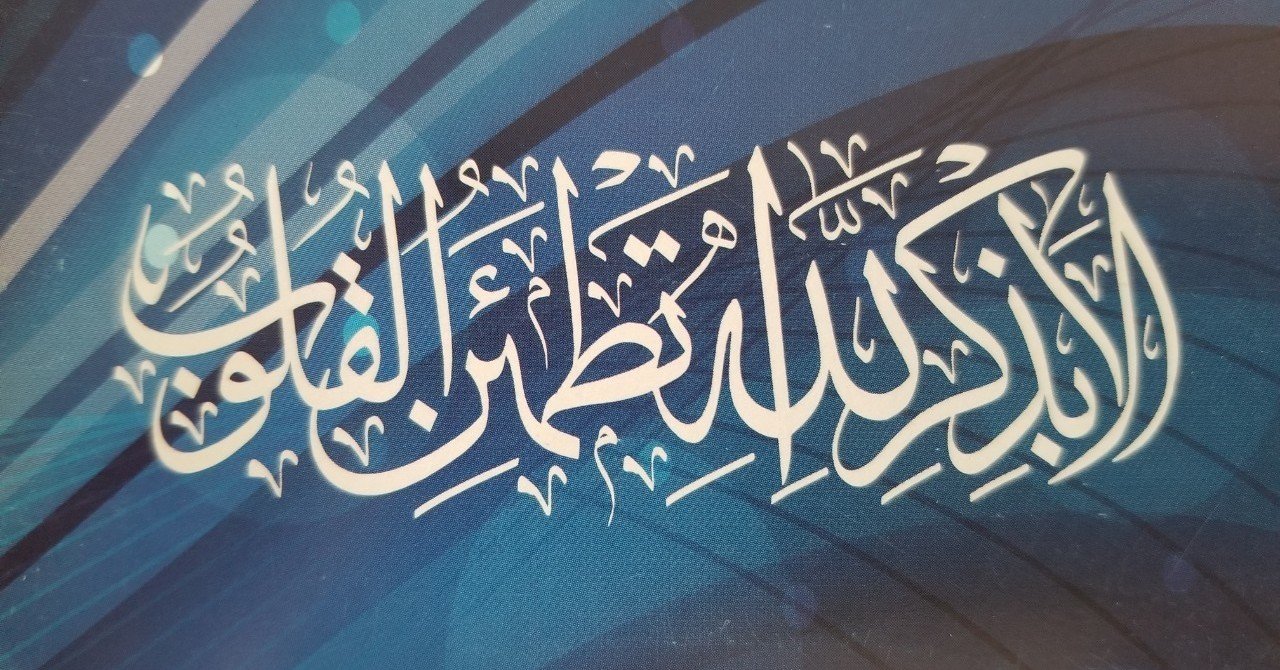 أَلَا بِذِكْرِ اللَّهِ تَطْمَئِنُّ الْقُلُوبُ